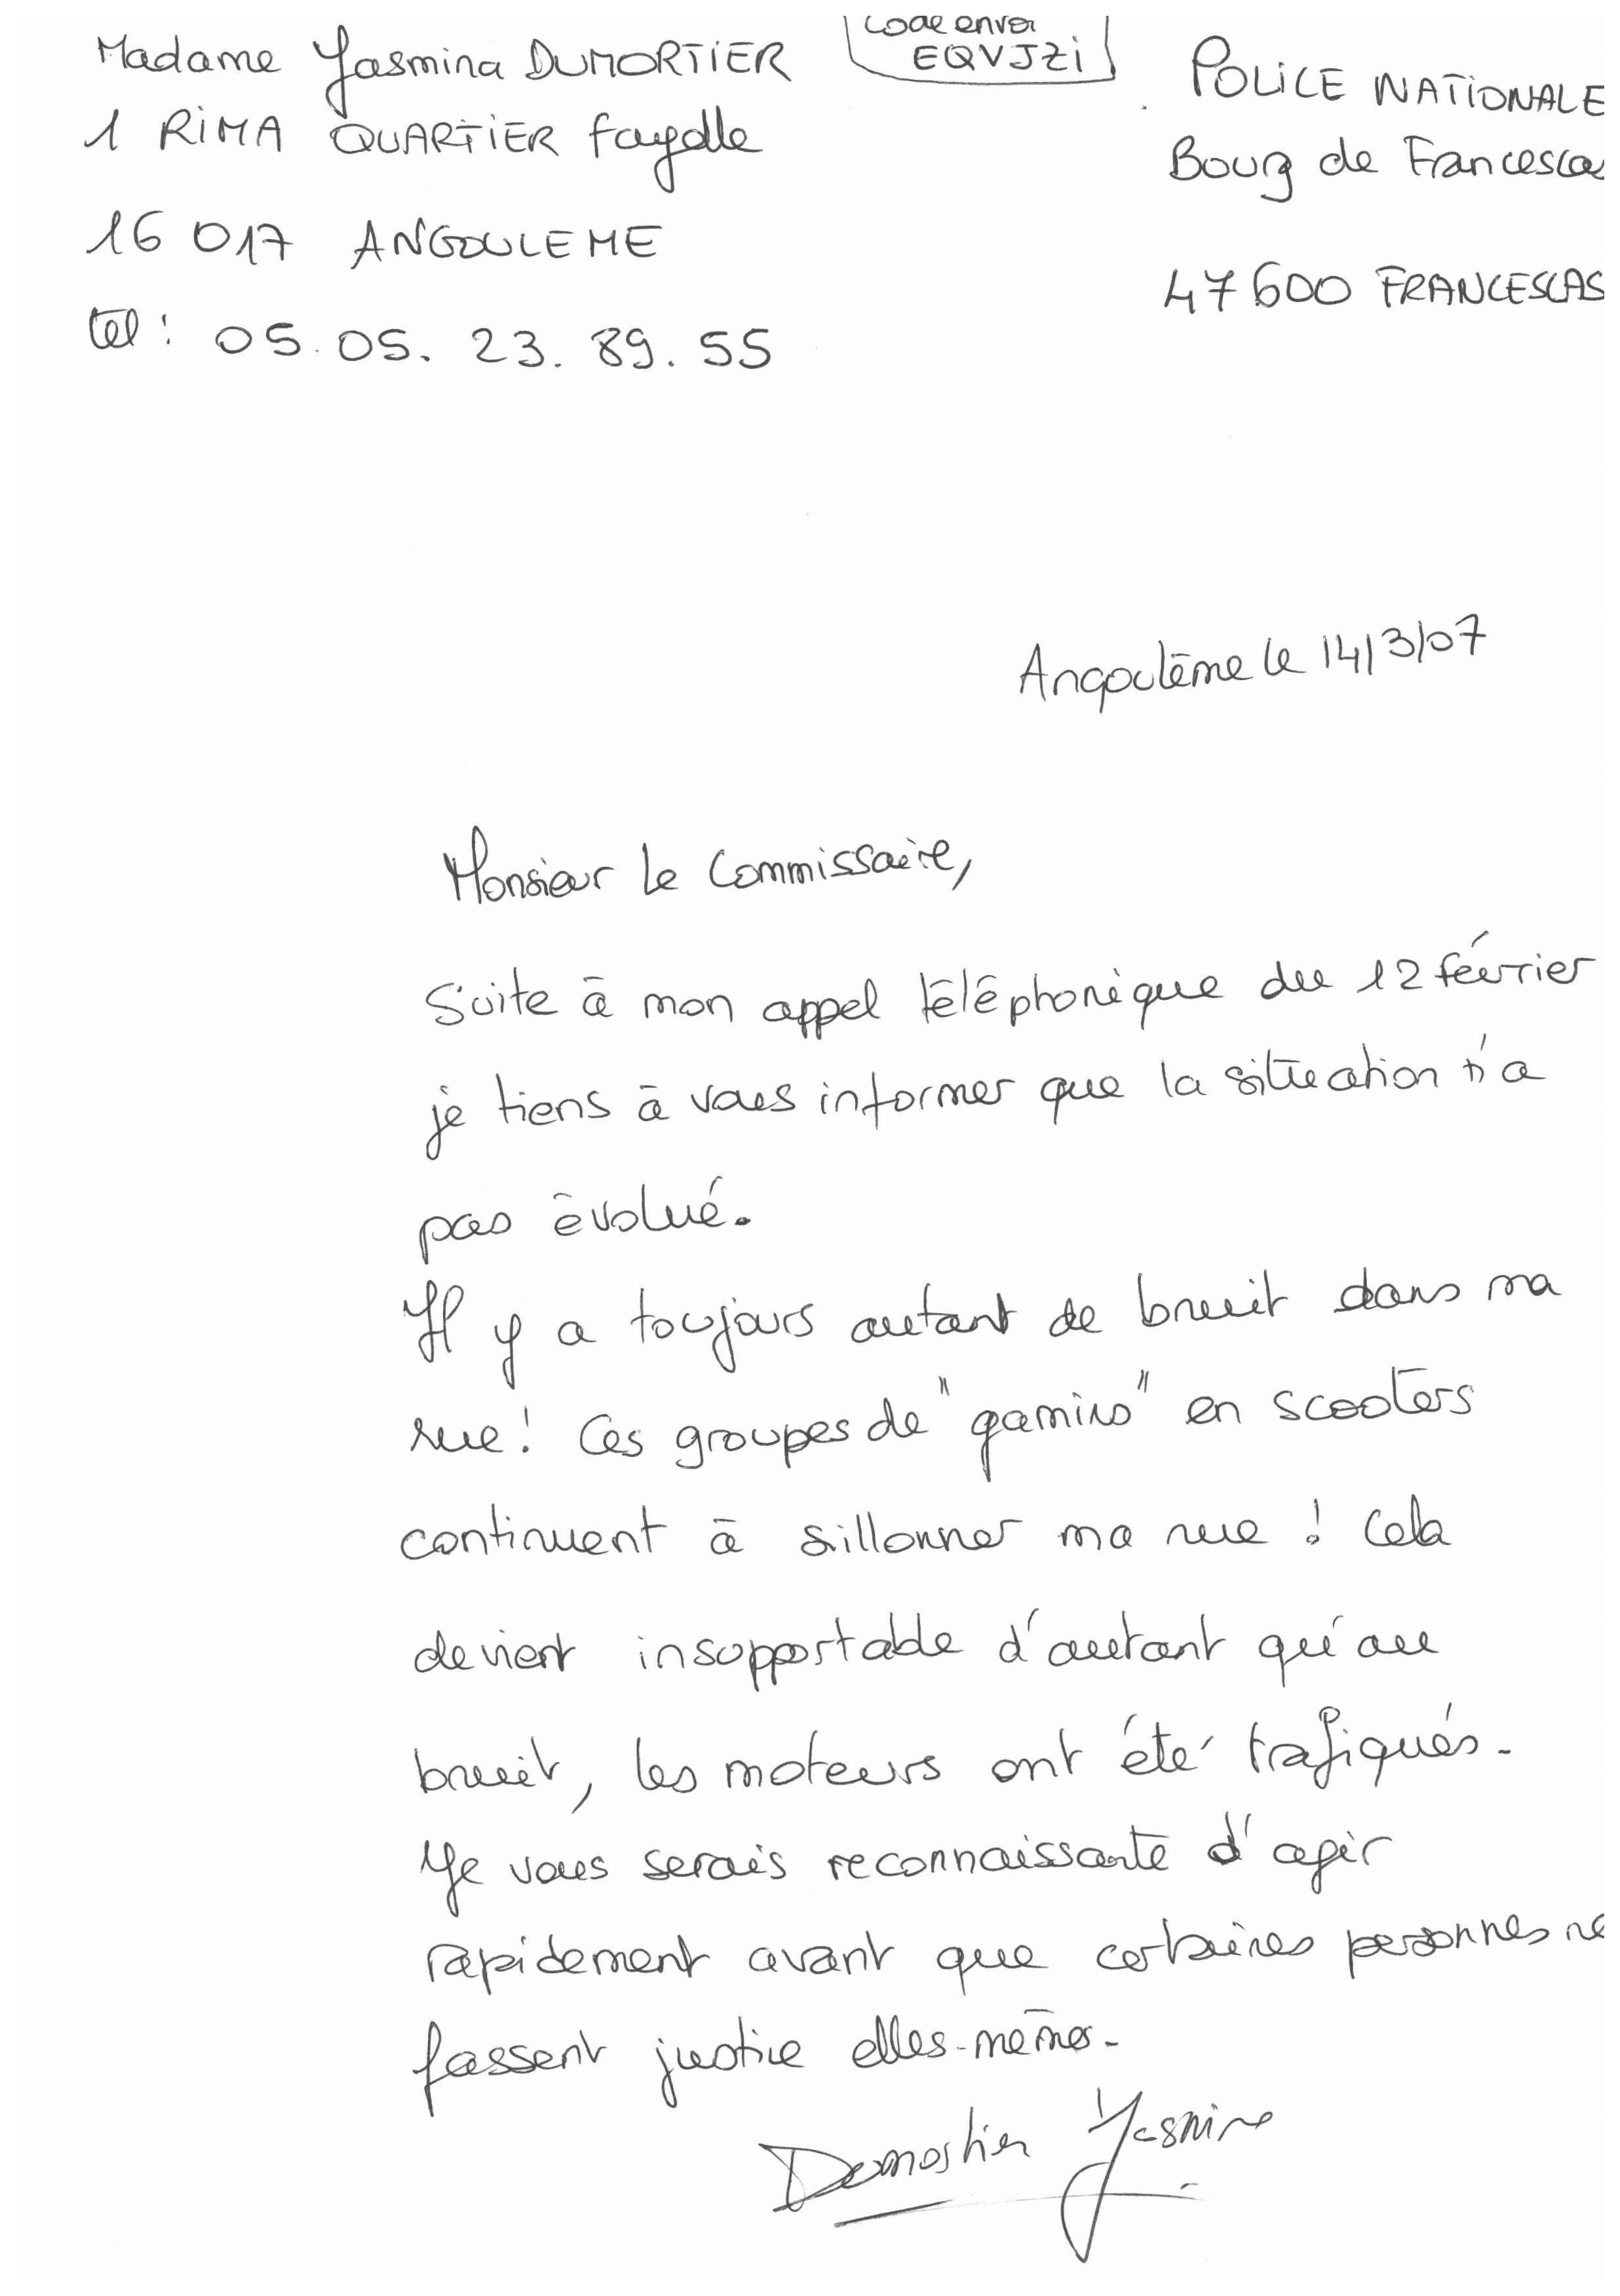 Madame Yasmina DUMORTIER
1 RIMA QUARTIER Fayolle
16 017 ANGOULEME
tel : 05. 05. 23. 89. 55
Code envoi
EQVJZI
POLICE NATIONALE
Bourg de Francescas
47600 FRANCESCAS
Angoulême le 14/3/07
Monsieur Le Commissaire,
Suite à mon appel téléphonique du 12 février
je tiens à vous informer que la situation n'a
pas évolué.
Il y a toujours autant de bruit dans ma
rue ! Ces groupes de "gamins" en scooters
continuent à sillonner ma rue ! Cela
devient insupportable d'autant qu'au
bruit, les moteurs ont été trafiqués.
Je vous serais reconnaissante d'agir
rapidement avant que certaines personnes ne
fassent justice elles-mêmes.
Dumortier Yasmina